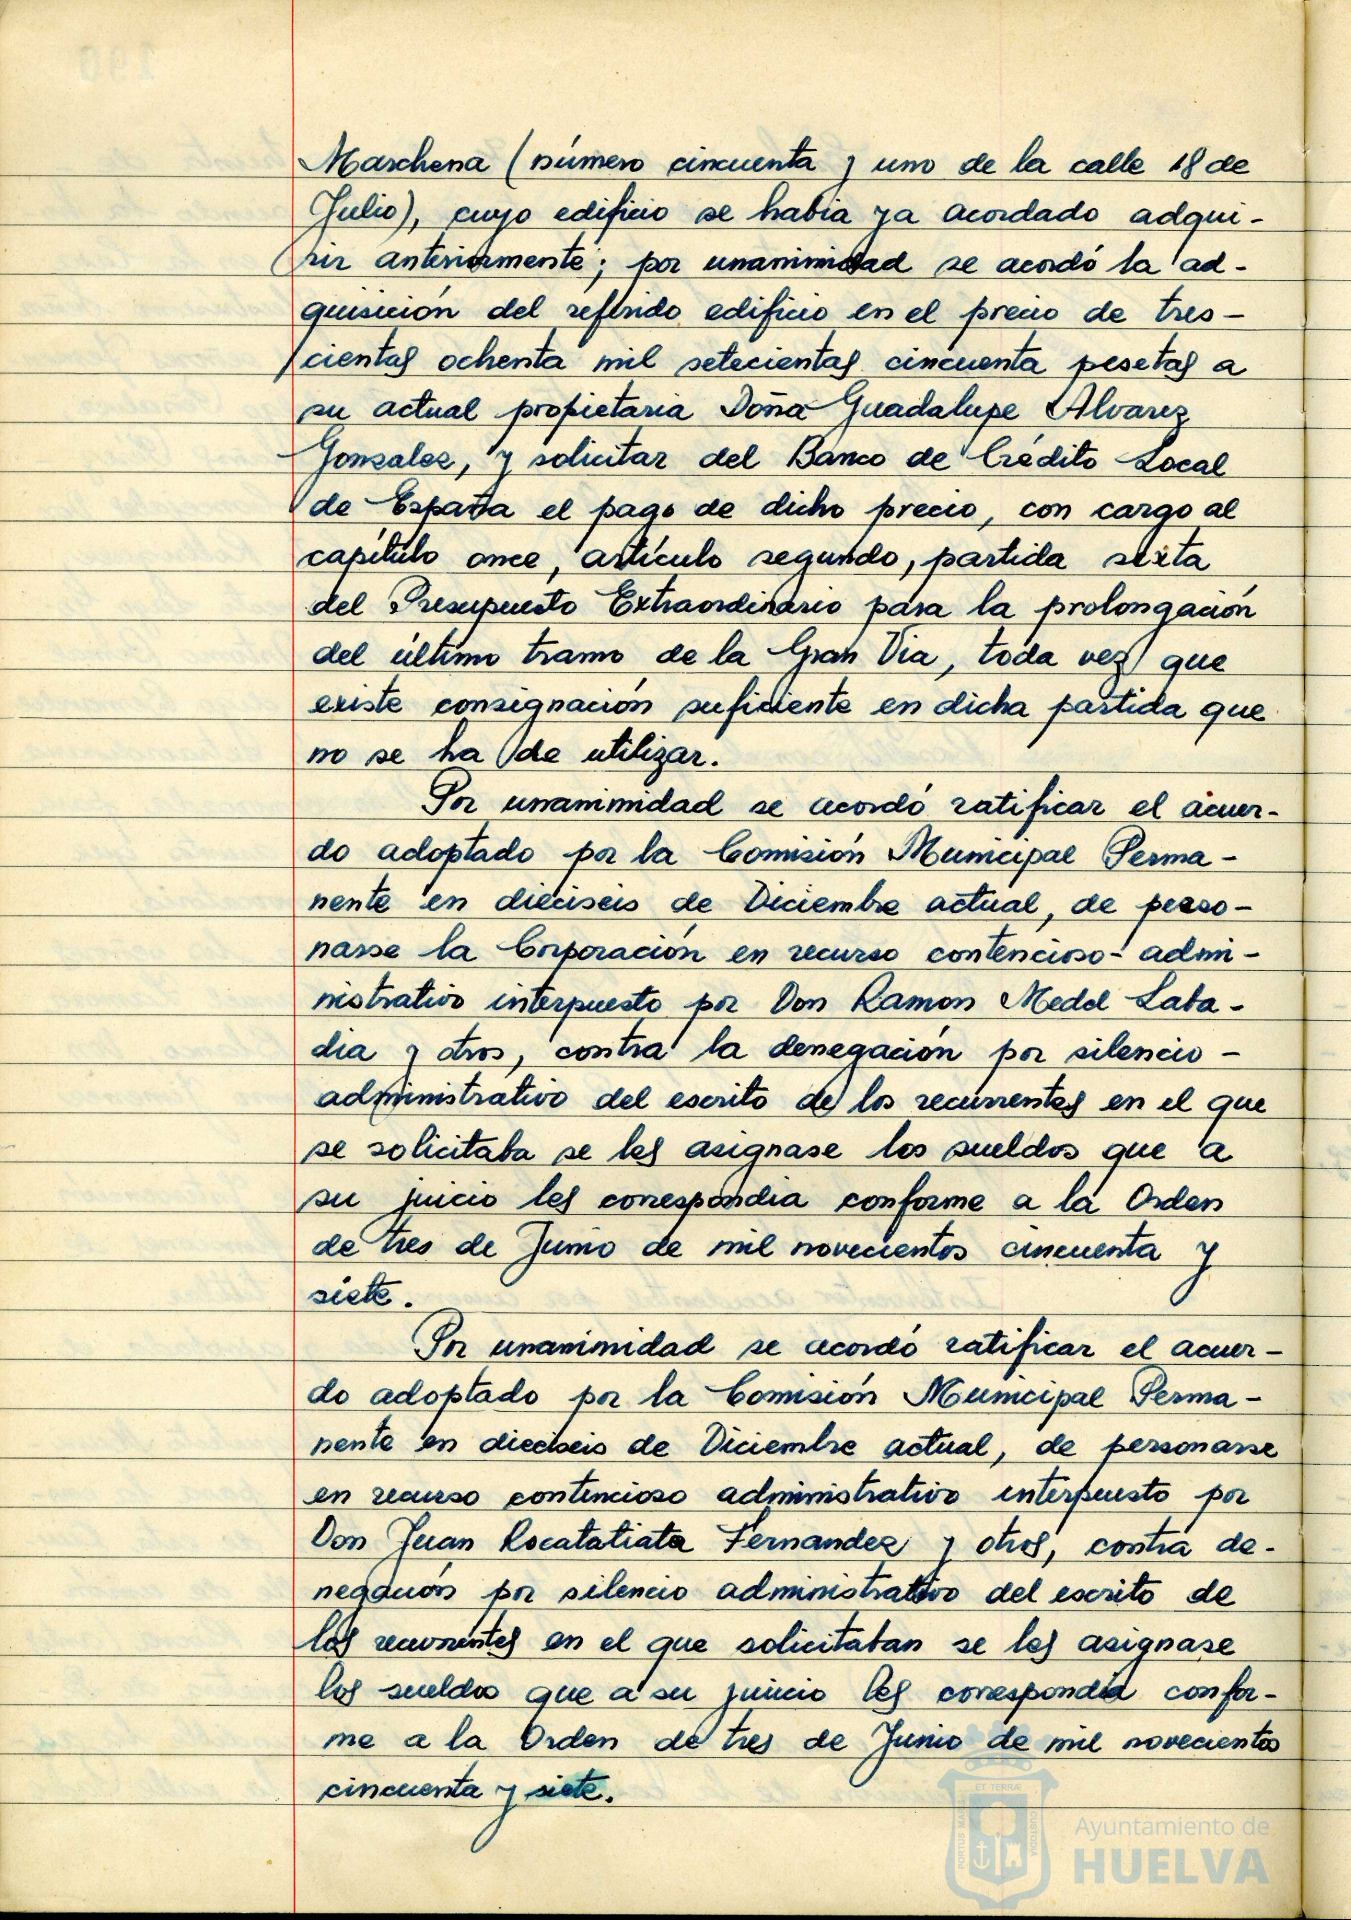 Marchena (número cincuenta y uno de la calle 18 de
Julio), cuyo edificio se habia ya acordado adqui-
rir anteriormente; por unanimidad se acordó la ad-
quisición del referido edificio en el precio de tres-
cientas ochenta mil setecientas cincuenta pesetas a
su actual propietaria Doña Guadalupe Alvarez
Gonzalez, y solicitar del Banco de Crédito Local
de España el pago de dicho precio, con cargo al
capítulo once, artículo segundo, partida sexta
del Presupuesto Extraordinario para la prolongación
del último tramo de la Gran Via, toda vez que
existe consignación suficiente en dicha partida que
no se ha de utilizar.
Por unanimidad se acordó ratificar el acuer-
do adoptado por la Comisión Municipal Perma-
nente en dieciseis de Diciembre actual, de perso-
narse la Corporación en recurso contencioso-admi-
nistrativo interpuesto por Don Ramon Medel Laba-
dia y otros, contra la denegación por silencio-
administrativo del escrito de los recurrentes en el que
se solicitaba se les asignase los sueldos que a
su juicio les correspondia conforme a la Orden
de tres de Junio de mil novecientos cincuenta y
siete.
Por unanimidad se acordó ratificar el acuer-
do adoptado por la Comisión Municipal Perma-
nente en dieciseis de Diciembre actual, de personarse
en recurso contencioso administrativo interpuesto por
Don Juan Rocatatiata Fernandez y otros, contra de-
negación por silencio administrativo del escrito de
los recurrentes en el que solicitaban se les asignase
los sueldos que a su juicio les correspondia confor-
me a la Orden de tres de Junio de mil novecientos
cincuenta y siete.
ET TERRÆ
PORTUS MARIS
CUSTODIA
Ayuntamiento de
HUELVA